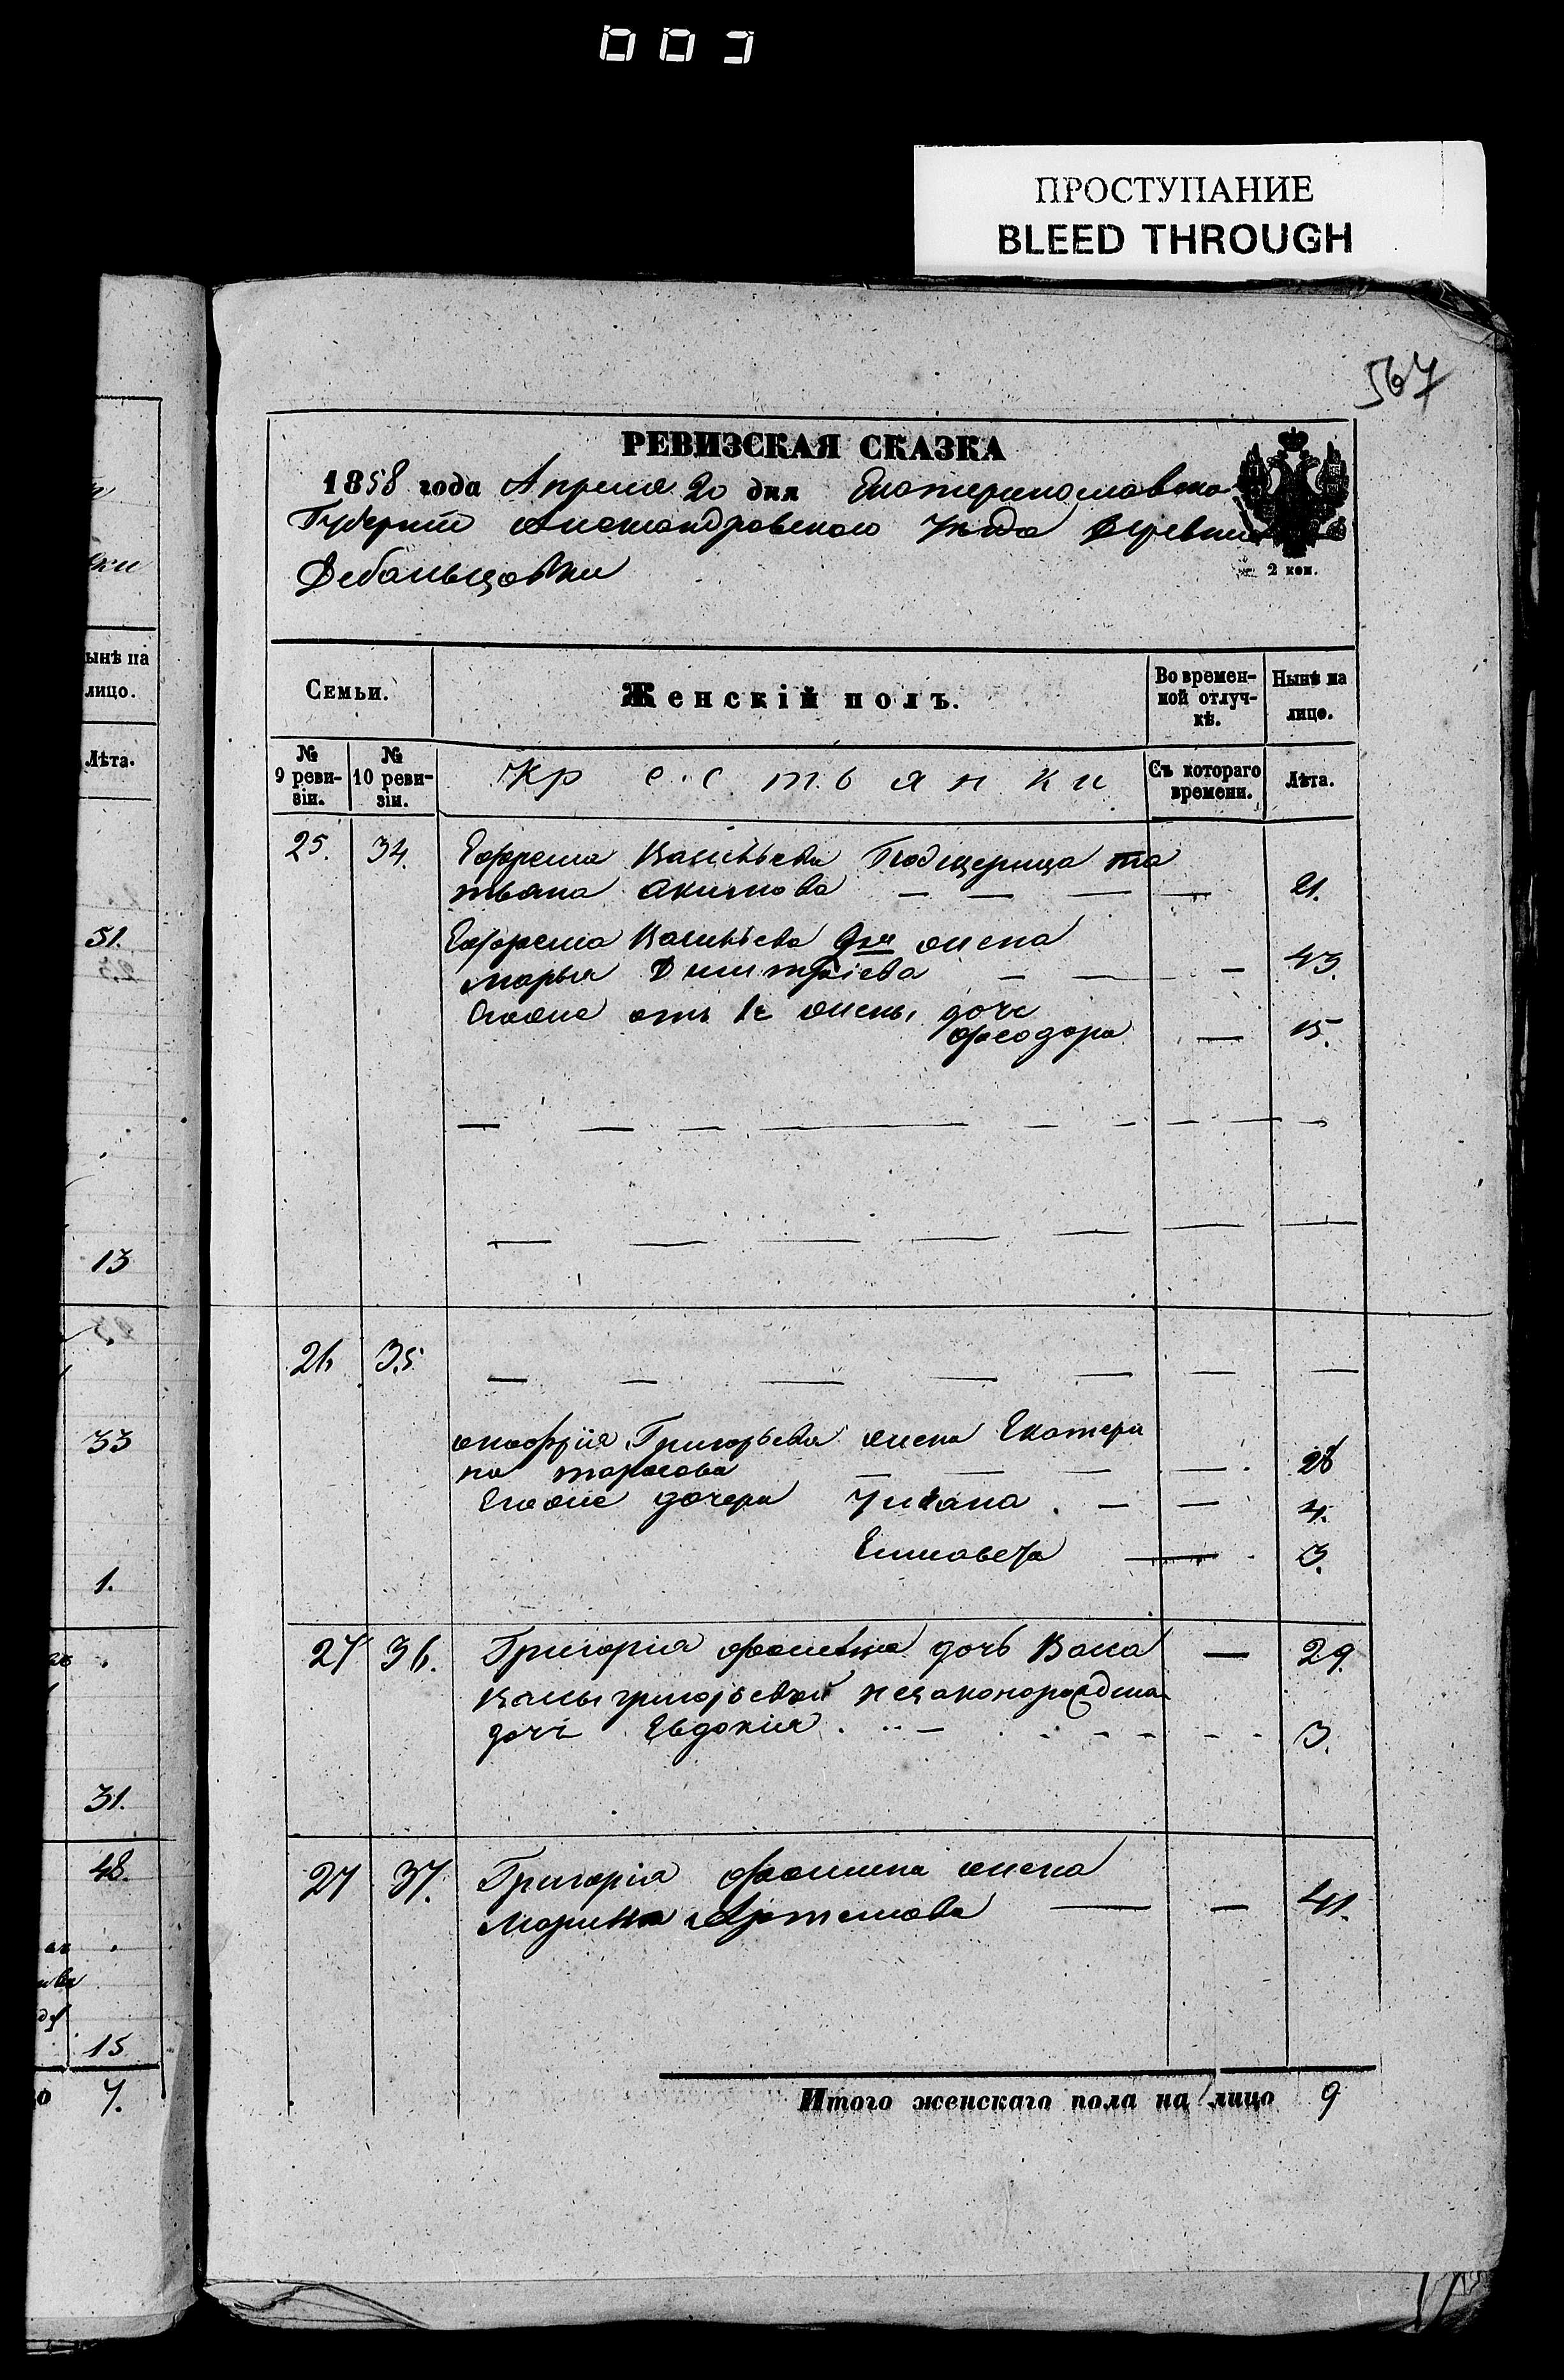 003
ПРОСТУПАНИЕ
BLEED THROUGH
567
РЕВИЗСКАЯ СКАЗКА
1858 года Апреля 20 дня Екатеринославской
Губернiи Александровскаго Уезда Деревни
Дебальцовки
2 коп.
ынѣ на
лицо.
Лѣта.
51.
13
33
1.
31.
48.
15
7.
Семьи.
Женскій полъ.
Во времен-
ной отлуч-
кѣ.
Нынѣ на
лицо.
№
9 реви-
зіи.
№
10 реви-
зіи.
Крестьянки
Съ котораго
времени.
Лѣта.
25. 34. Ефрема Васильева Падщерица та
тьяна Акимова — — — — 21.
Ефрема Васильева 2я жена
Марья Димитріева — — — 43.
Егоже отъ 1й жены дочь
Феодора — 15.
26 35
Григорьева жена Екатери
на Тарасова — — — — 28
Егоже дочери Ульяна — — 4.
Елисавета — 3.
27 36. Григорія Фомина дочь Васа — 29.
Васы Григорьевой незаконорожденая
дочь Евдокія 3.
27 37. Григорія Фомина жена
Марина Артемова — — 41.
Итого женскаго пола на лицо 9